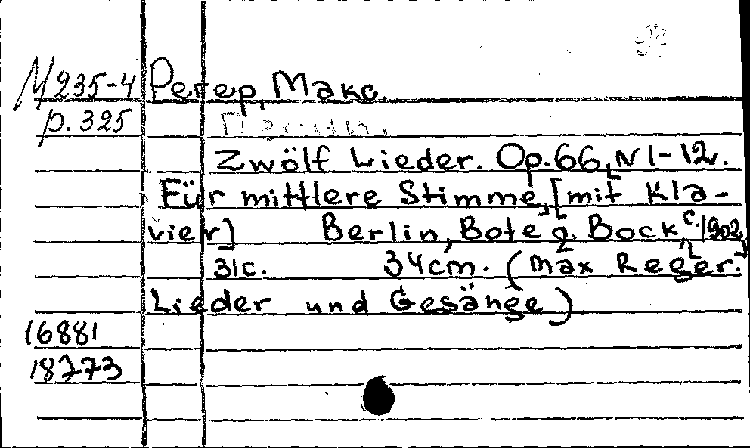 М 235-4 Регер, Макс.
р. 325
Zwölf Lieder. Op. 66, N 1-12.
Für mittlere Stimme, [mit Kla-
vier] Berlin, Bote g. Bock c. 1902.
31c. 34cm. (Max Reger.
Lieder und Gesänge)
16881
18773